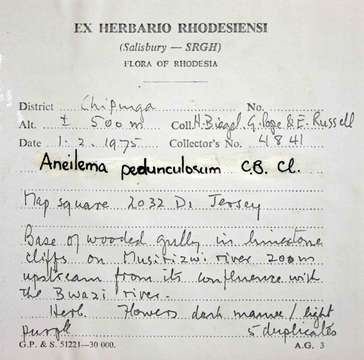 EX HERBARIO RHODESIENSI
(Salisbury — SRGH)
FLORA OF RHODESIA
District Chipinga No.
Alt. ± 500 m Coll. H. Biegel, G. Pope & E. Russell
Date 1. 2. 1975 Collector's No. 4841
Aneilema pedunculosum C.B. Cl.
Map square 2032 D1 Jersey
Base of wooded gully in limestone
cliffs on Musirizwi river 200m
upstream from its confluence with
the Bwazi river.
Herb. Flowers dark mauve / light
purple 5 duplicates
G.P. & S. 51221—30 000. A.G. 3